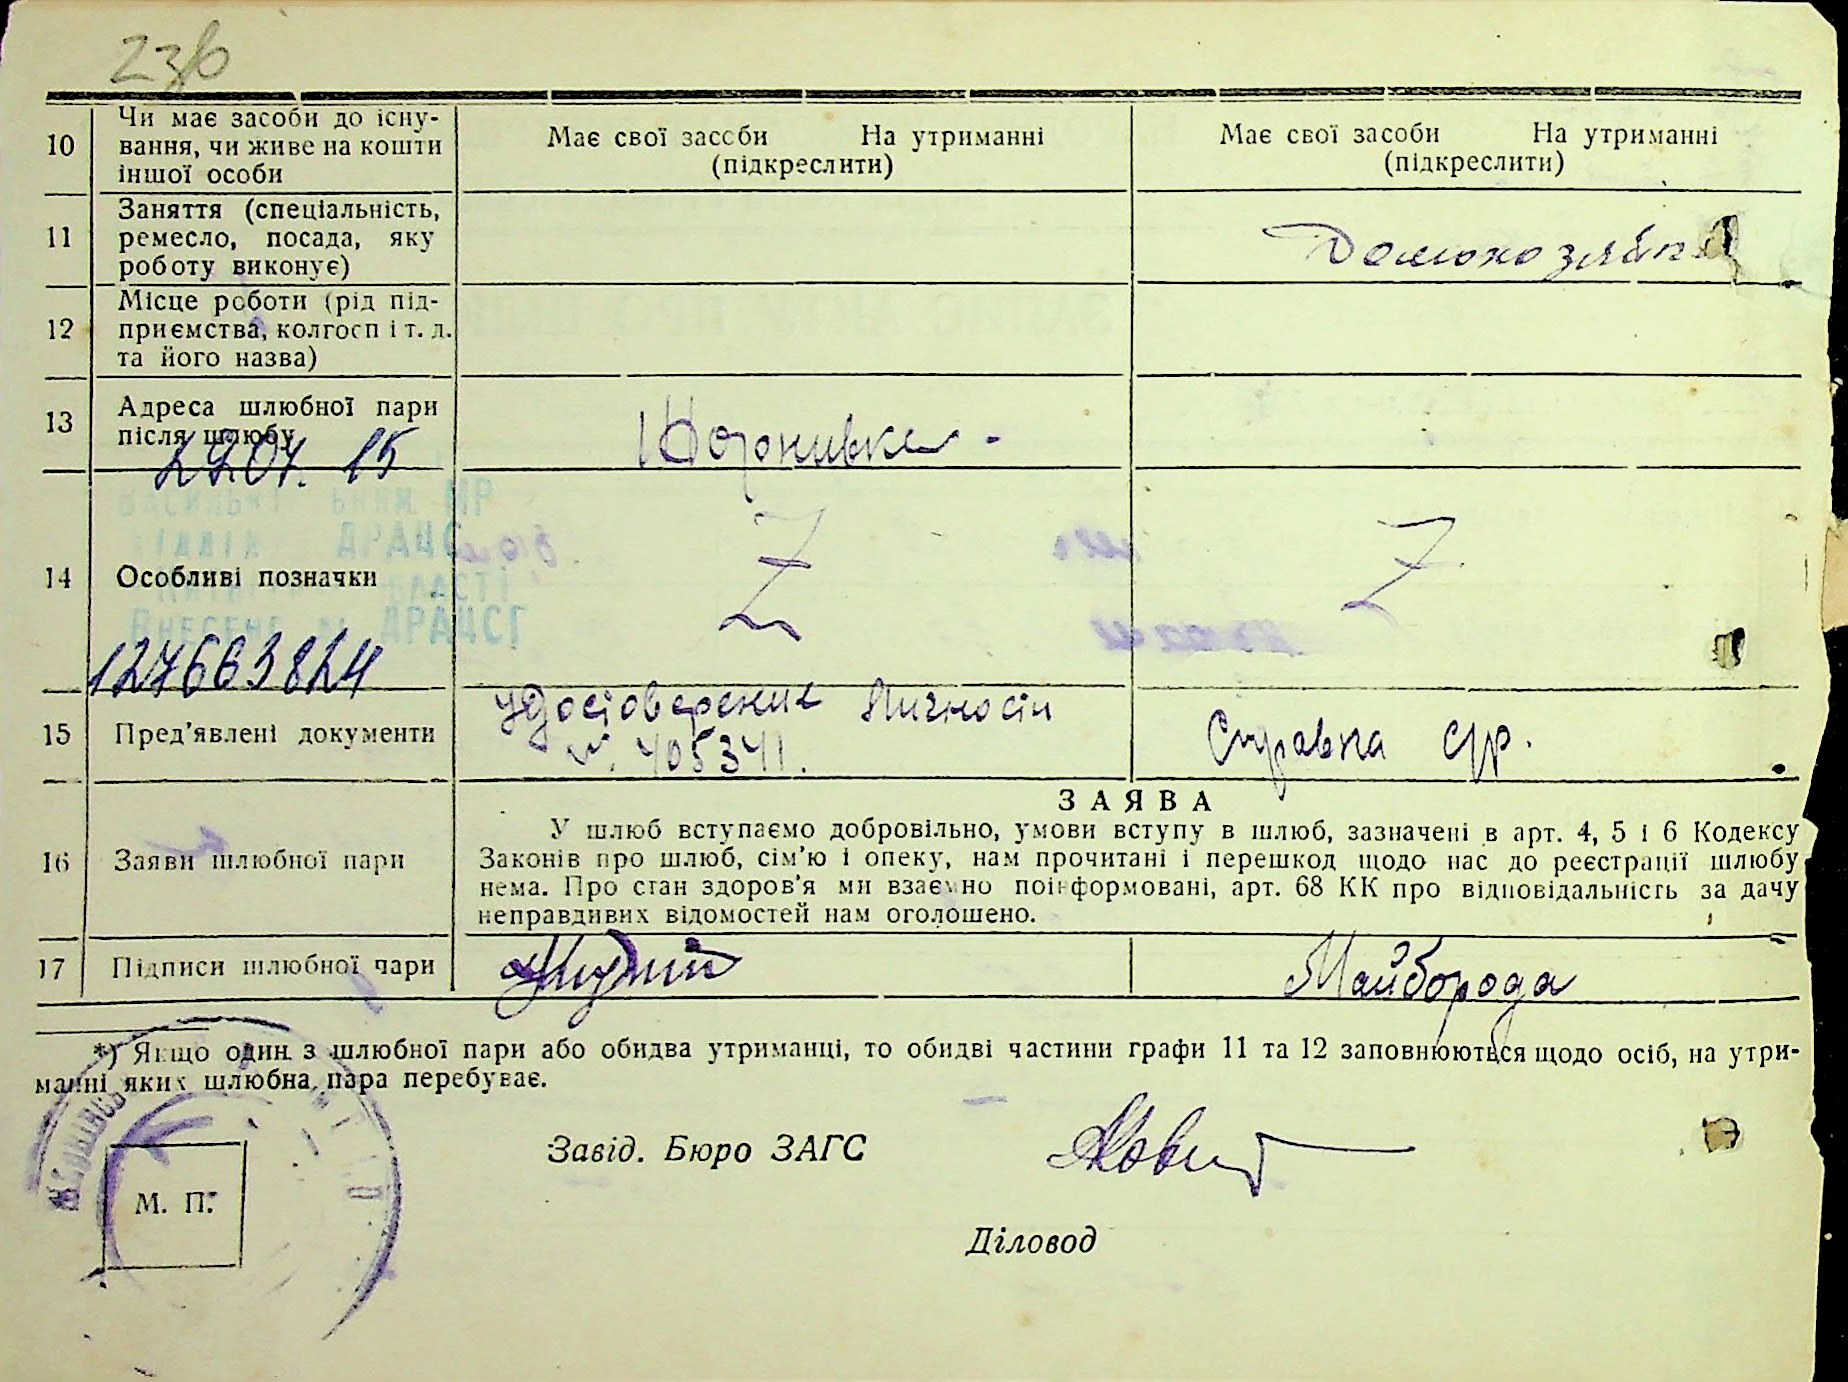 23/6
10 Чи має засоби до існу-
вання, чи живе на кошти
іншої особи
Має свої засоби На утриманні
(підкреслити)
Має свої засоби На утриманні
(підкреслити)
11 Заняття (спеціальність,
ремесло, посада, яку
роботу виконує)
Домохозяйка
12 Місце роботи (рід під-
приємства, колгосп і т. д.
та його назва)
13 Адреса шлюбної пари
після шлюбу
15
МР
ДРАЦС
14 Особливі позначки
Z
Z
ДРАЦСГ
127663824
15 Пред'явлені документи
удостоверение личности
№ 405341.
Справка с/р.
16 Заяви шлюбної пари
ЗАЯВА
У шлюб вступаємо добровільно, умови вступу в шлюб, зазначені в арт. 4, 5 і 6 Кодексу
Законів про шлюб, сім'ю і опеку, нам прочитані і перешкод щодо нас до реєстрації шлюбу
нема. Про стан здоров'я ми взаємно поінформовані, арт. 68 КК про відповідальність за дачу
неправдивих відомостей нам оголошено.
17 Підписи шлюбної пари
Майборода
*) Якщо один з шлюбної пари або обидва утриманці, то обидві частини графи 11 та 12 заповнюються щодо осіб, на утри-
манні яких шлюбна пара перебуває.
Завід. Бюро ЗАГС
М. П.
Діловод